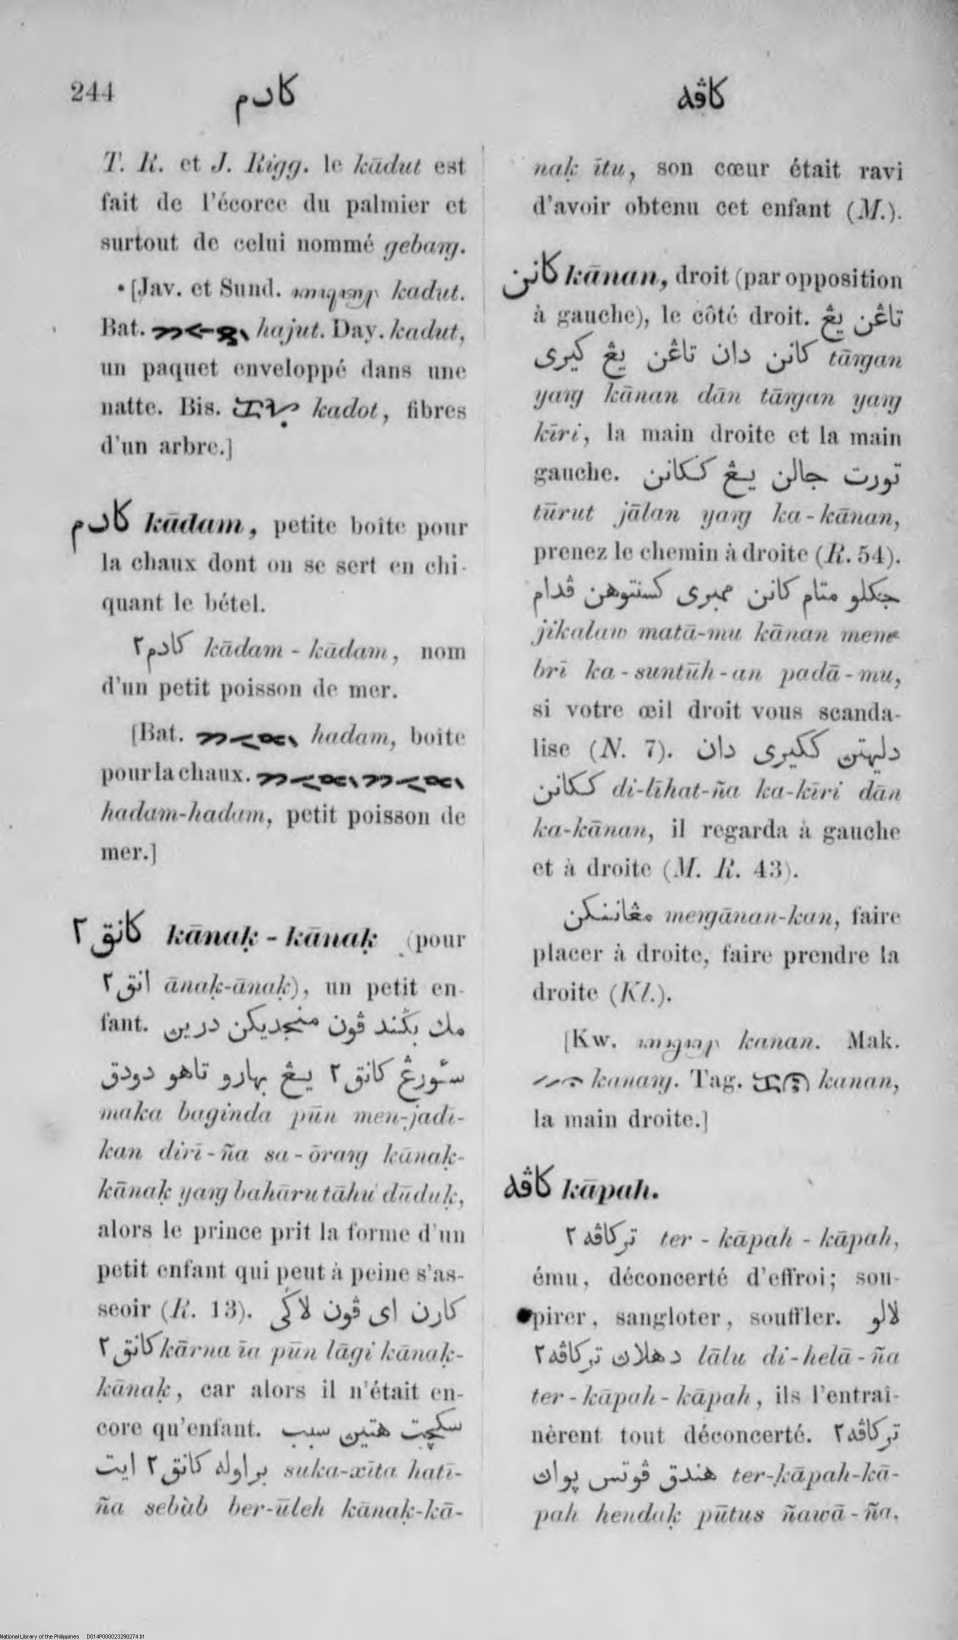 244
كادم
كاڤه
T. R. et J. Rigg. le kādut est
fait de l'écorce du palmier et
surtout de celui nommé gebaṅg.
[Jav. et Sund. kadut.
Bat. hajut. Day. kadut,
un paquet enveloppé dans une
natte. Bis. kadot, fibres
d'un arbre.]
كادم kādam, petite boîte pour
la chaux dont on se sert en chi-
quant le bétel.
كادم٢ kādam - kādam, nom
d'un petit poisson de mer.
[Bat. hadam, boîte
pour la chaux.
hadam-hadam, petit poisson de
mer.]
كانق٢ kānaḳ - kānaḳ (pour
انق٢ ānaḳ-ānaḳ), un petit en-
fant. مك بݢند ڤون منجديكن درين
سئورڠ كانق٢ يڠ بهارو تاهو دودق
maka baginda pūn men-jadī-
kan dirī-ña sa-ōraṅg kānaḳ-
kānaḳ yaṅg bahāru tāhu dūduḳ,
alors le prince prit la forme d'un
petit enfant qui peut à peine s'as-
seoir (R. 13). كارن اى ڤون لاݢى
كانق٢ kārna īa pūn lāgi kānaḳ-
kānaḳ, car alors il n'était en-
core qu'enfant. سكچت هتين سبب
براوله كانق٢ ايت suka-xīta hatī-
ña sebàb ber-ūleh kānaḳ-kā-
naḳ ītu, son cœur était ravi
d'avoir obtenu cet enfant (M.).
كانن kānan, droit (par opposition
à gauche), le côté droit. تاڠن يڠ
كانن دان تاڠن يڠ كيرى tāṅgan
yaṅg kānan dān tāṅgan yaṅg
kīri, la main droite et la main
gauche. تورت جالن يڠ ككانن
tūrut jālan yaṅg ka-kānan,
prenez le chemin à droite (R. 54).
جكلو متام كانن ممبرى كسنتوهن ڤدام
jikalaw matā-mu kānan mem-
brī ka-suntūh-an padā-mu,
si votre œil droit vous scanda-
lise (N. 7). دليهتن ككيرى دان
ككانن di-līhat-ña ka-kīri dān
ka-kānan, il regarda à gauche
et à droite (M. R. 43).
مڠاننكن meṅgānan-kan, faire
placer à droite, faire prendre la
droite (Kl.).
[Kw. kanan. Mak.
kanaṅg. Tag. kanan,
la main droite.]
كاڤه kāpah.
تركاڤه٢ ter - kāpah - kāpah,
ému, déconcerté d'effroi; sou-
pirer, sangloter, souffler. لالو
دهلاڽ تركاڤه٢ lālu di-helā-ña
ter-kāpah-kāpah, ils l'entraî-
nèrent tout déconcerté. تركاڤه٢
هندق ڤوتس ڽواڽ ter-kāpah-kā-
pah hendaḳ pūtus ñawā-ña,
National Library of the Philippines